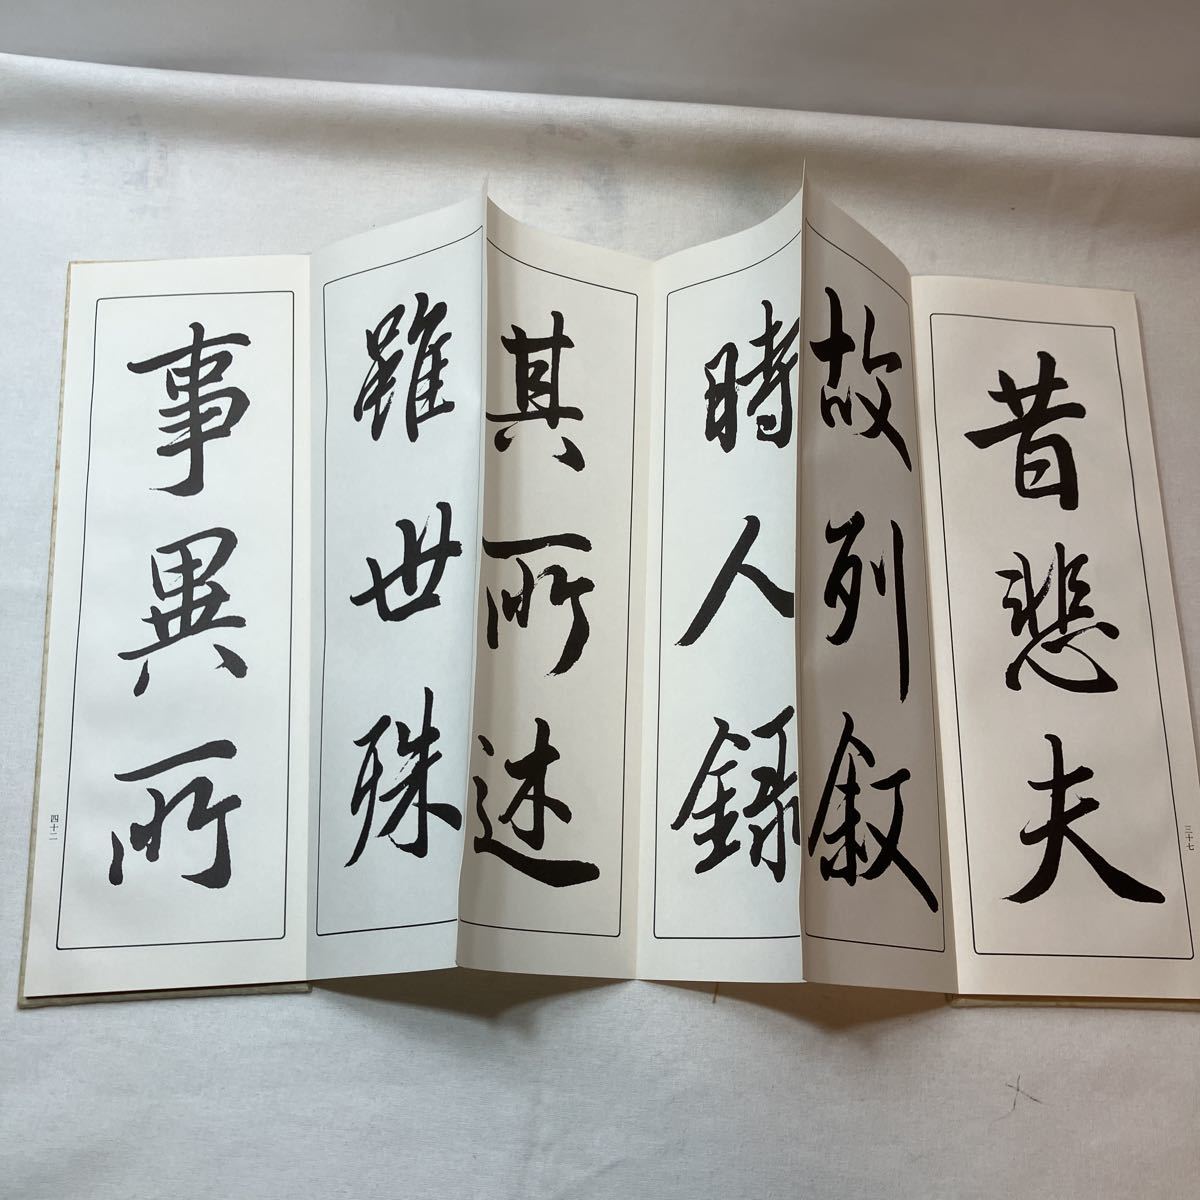 昔悲夫
故列叙
時人録
其所述
雖世殊
事異所
三十七
四十二